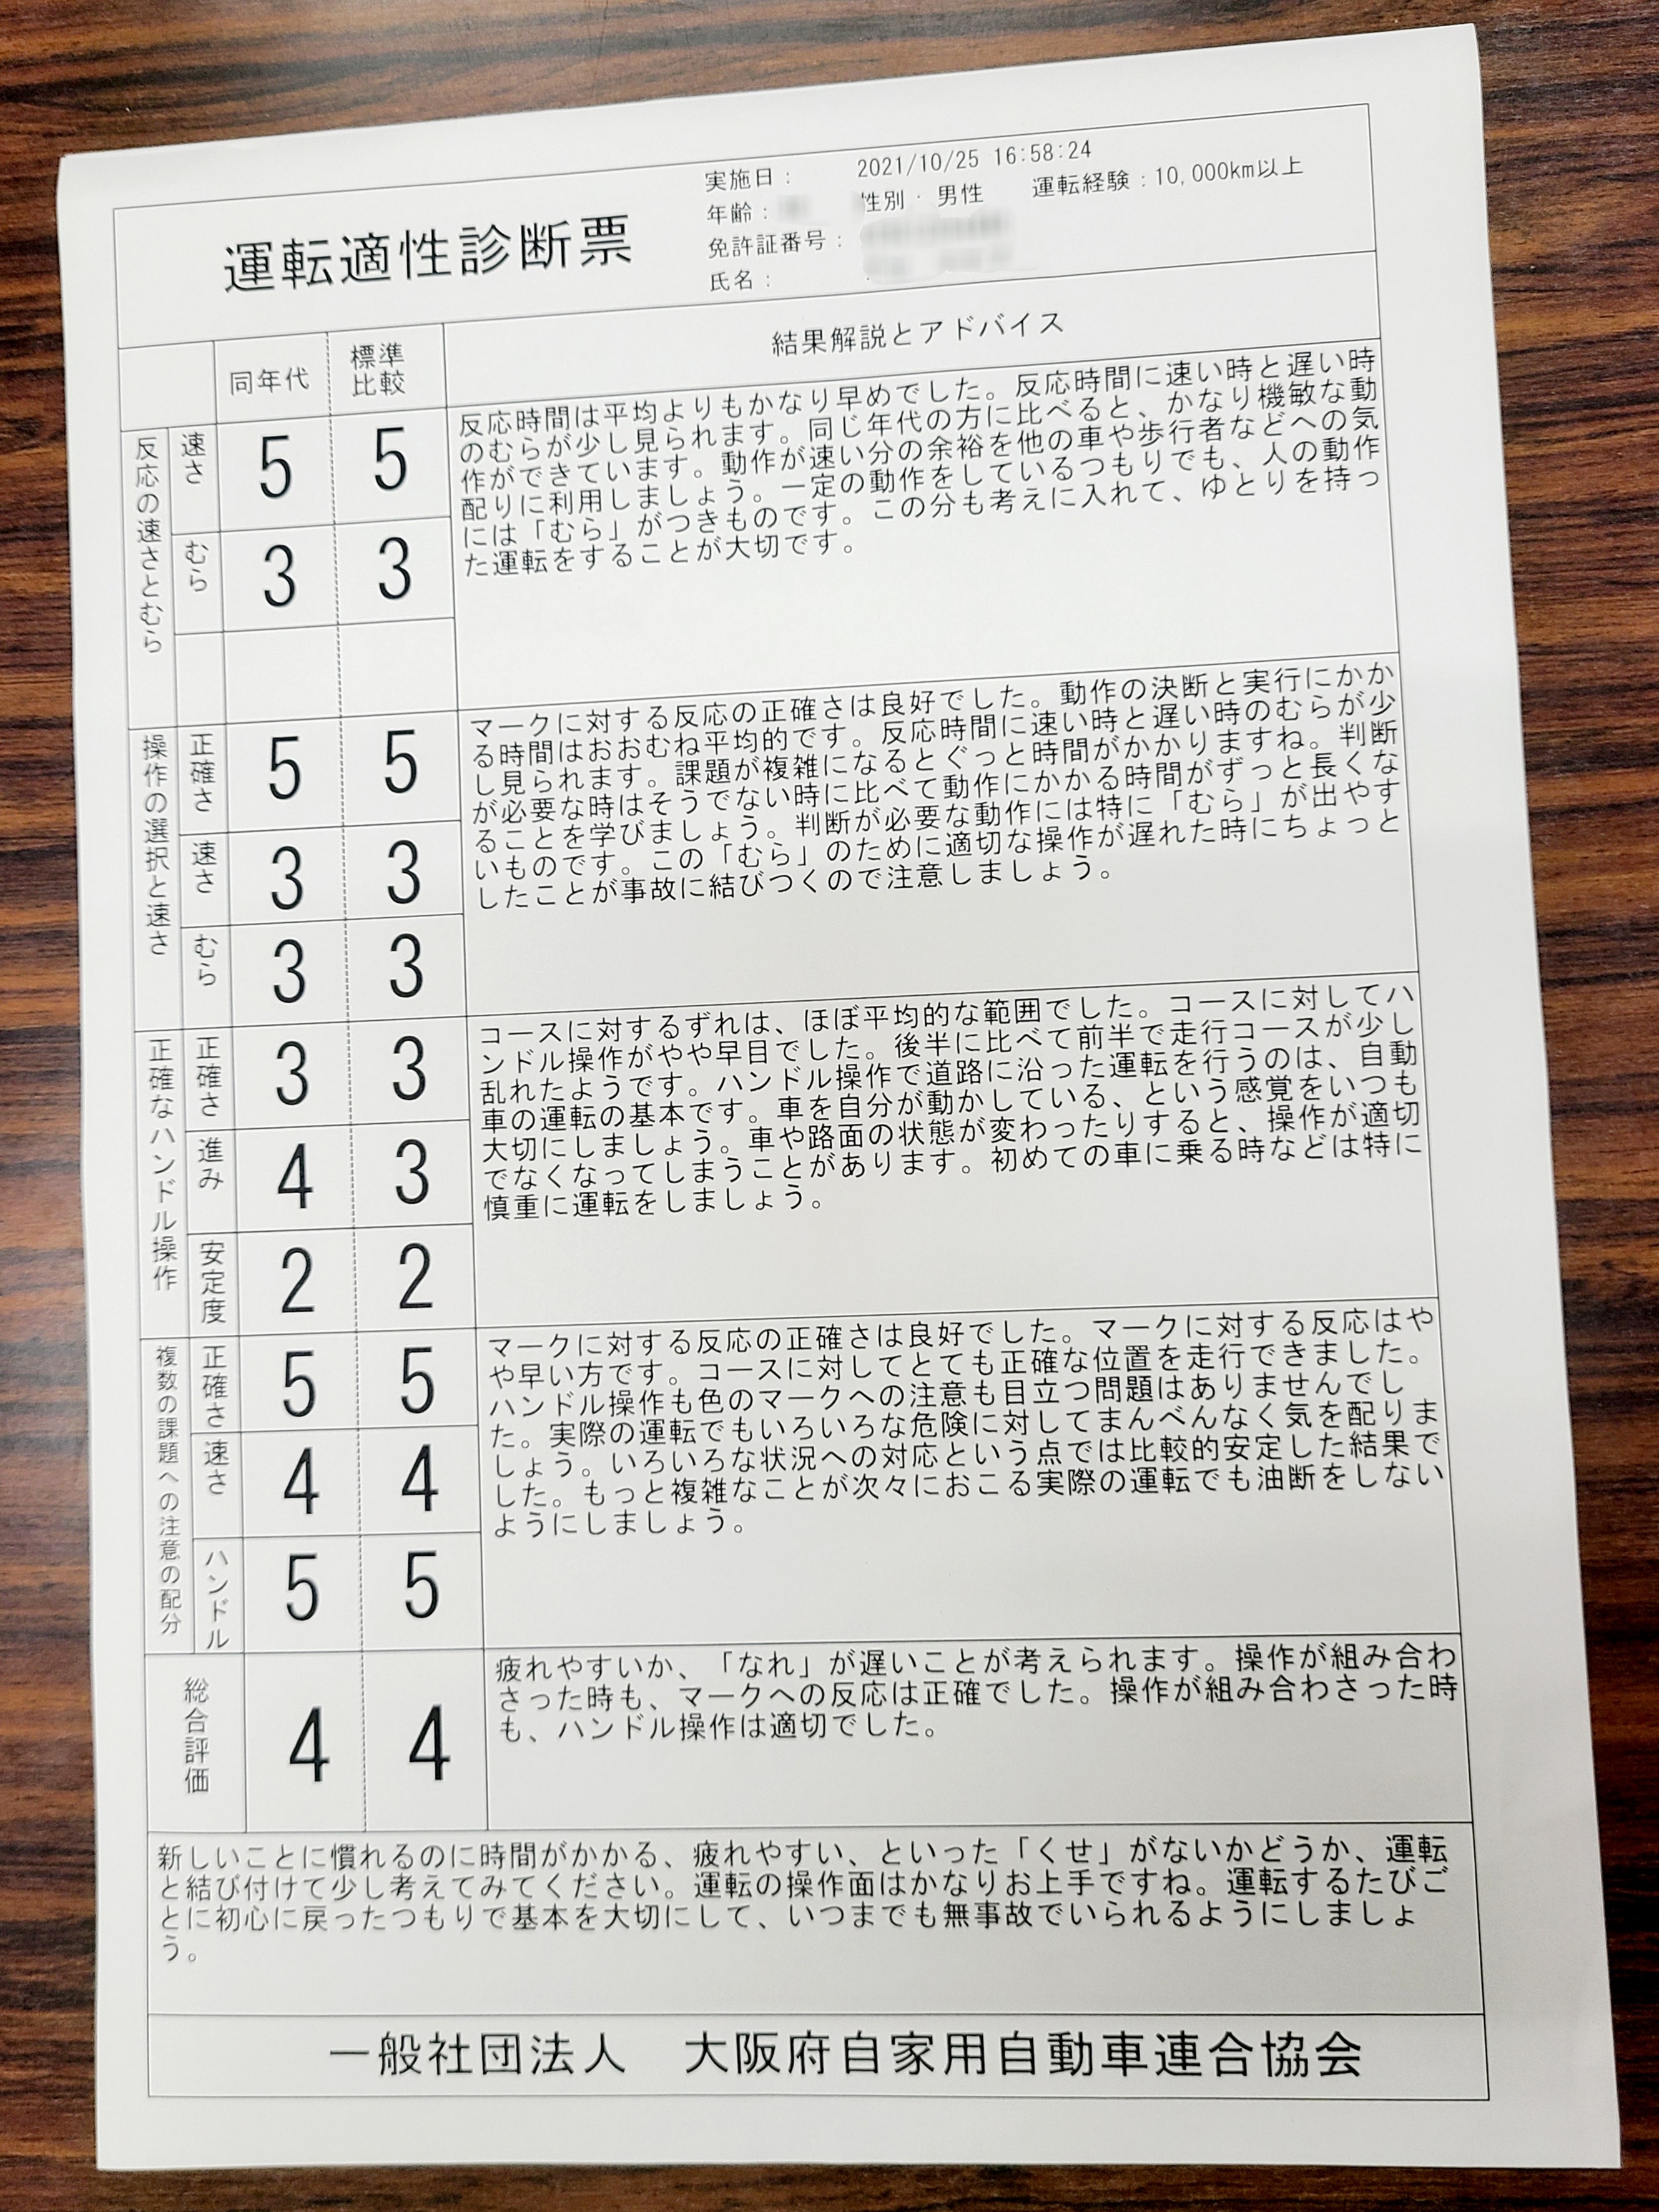 運転適性診断票
実施日： 2021/10/25 16:58:24
年齢： 性別・男性 運転経験：10,000km以上
免許証番号：
氏名：
同年代
標準比較
結果解説とアドバイス
反応の速さとむら
速さ 5 5
むら 3 3
反応時間は平均よりもかなり早めでした。反応時間に速い時と遅い時
のむらが少し見られます。同じ年代の方に比べると、かなり機敏な動
作ができています。動作が速い分の余裕を他の車や歩行者などへの気
配りに利用しましょう。一定の動作をしているつもりでも、人の動作
には「むら」がつきものです。この分も考えに入れて、ゆとりを持っ
た運転をすることが大切です。
操作の選択と速さ
正確さ 5 5
速さ 3 3
むら 3 3
マークに対する反応の正確さは良好でした。動作の決断と実行にかか
る時間はおおむね平均的です。反応時間に速い時と遅い時のむらが少
し見られます。課題が複雑になるとぐっと時間がかかりますね。判断
が必要な時はそうでない時に比べて動作にかかる時間がずっと長くな
ることを学びましょう。判断が必要な動作には特に「むら」が出やす
いものです。この「むら」のために適切な操作が遅れた時にちょっと
したことが事故に結びつくので注意しましょう。
正確なハンドル操作
正確さ 3 3
進み 4 3
安定度 2 2
コースに対するずれは、ほぼ平均的な範囲でした。コースに対してハ
ンドル操作がやや早目でした。後半に比べて前半で走行コースが少し
乱れたようです。ハンドル操作で道路に沿った運転を行うのは、自動
車の運転の基本です。車を自分が動かしている、という感覚をいつも
大切にしましょう。車や路面の状態が変わったりすると、操作が適切
でなくなってしまうことがあります。初めての車に乗る時などは特に
慎重に運転をしましょう。
複数の課題への注意の配分
正確さ 5 5
速さ 4 4
ハンドル 5 5
マークに対する反応の正確さは良好でした。マークに対する反応はや
や早い方です。コースに対してとても正確な位置を走行できました。
ハンドル操作も色のマークへの注意も目立つ問題はありませんでし
た。実際の運転でもいろいろな危険に対してまんべんなく気を配りま
しょう。いろいろな状況への対応という点では比較的安定した結果で
した。もっと複雑なことが次々におこる実際の運転でも油断をしない
ようにしましょう。
総合評価 4 4
疲れやすいか、「なれ」が遅いことが考えられます。操作が組み合わ
さった時も、マークへの反応は正確でした。操作が組み合わさった時
も、ハンドル操作は適切でした。
新しいことに慣れるのに時間がかかる、疲れやすい、といった「くせ」がないかどうか、運転
と結び付けて少し考えてみてください。運転の操作面はかなりお上手ですね。運転するたびご
とに初心に戻ったつもりで基本を大切にして、いつまでも無事故でいられるようにしましょ
う。
一般社団法人 大阪府自家用自動車連合協会